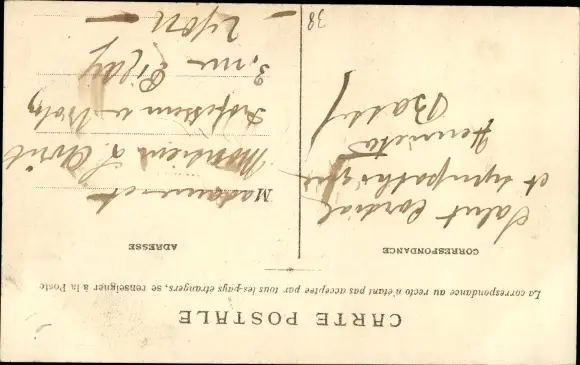 CARTE POSTALE
La correspondance au recto n'étant pas acceptée par tous les pays étrangers, se renseigner à la Poste
CORRESPONDANCE
Salut cordial
et sympathique
Henriette
38
ADRESSE
Madame et
Monsieur L. Avril
Professeur
3, rue Pizay
Lyon